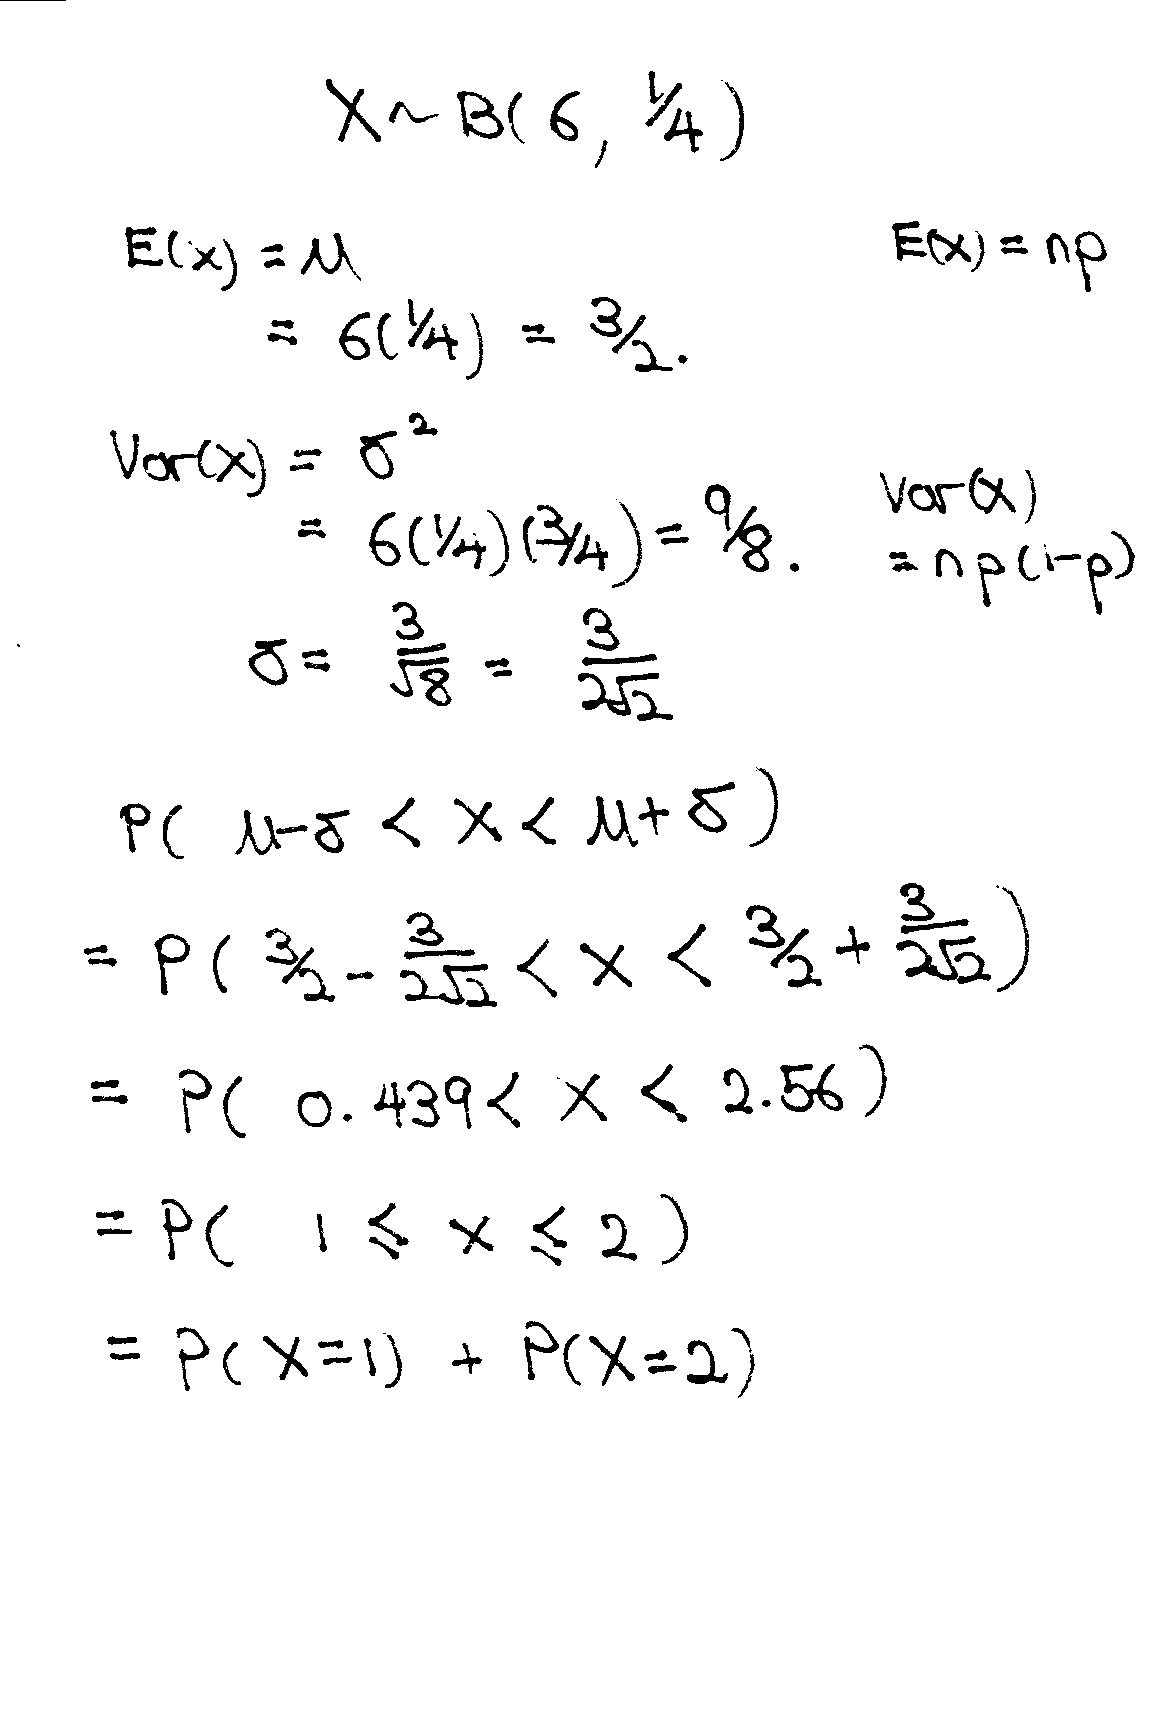 X ~ B(6, 1/4)
E(x) = μ
E(x) = np
= 6(1/4) = 3/2.
Var(x) = σ²
Var(x)
= 6(1/4)(3/4) = 9/8.
= np(1-p)
σ = 3/√8 = 3/2√2
P( μ-σ < x < μ+σ )
= P( 3/2 - 3/2√2 < x < 3/2 + 3/2√2 )
= P( 0.439 < x < 2.56 )
= P( 1 ≤ x ≤ 2 )
= P( X=1) + P(X=2)